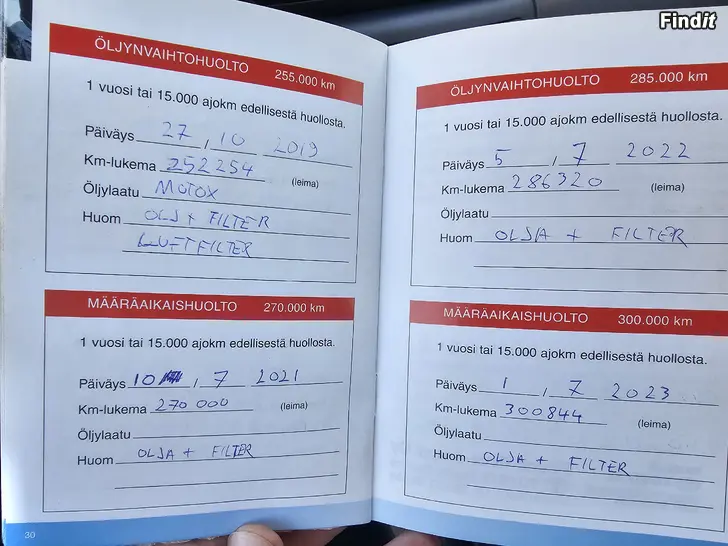 Findit
ÖLJYNVAIHTOHUOLTO 255.000 km
1 vuosi tai 15.000 ajokm edellisestä huollosta.
Päiväys 27 , 10 2019
Km-lukema 252254
(leima)
Öljylaatu MOTOX
Huom OLJ + FILTER
LUFTFILTER
MÄÄRÄAIKAISHUOLTO 270.000 km
1 vuosi tai 15.000 ajokm edellisestä huollosta.
Päiväys 10 , 7 2021
Km-lukema 270 000
(leima)
Öljylaatu
Huom OLJA + FILTER
30
ÖLJYNVAIHTOHUOLTO 285.000 km
1 vuosi tai 15.000 ajokm edellisestä huollosta.
Päiväys 5 , 7 2022
Km-lukema 286320
(leima)
Öljylaatu
Huom OLJA + FILTER
MÄÄRÄAIKAISHUOLTO 300.000 km
1 vuosi tai 15.000 ajokm edellisestä huollosta.
Päiväys 1 , 7 2023
Km-lukema 300844
(leima)
Öljylaatu
Huom OLJA + FILTER